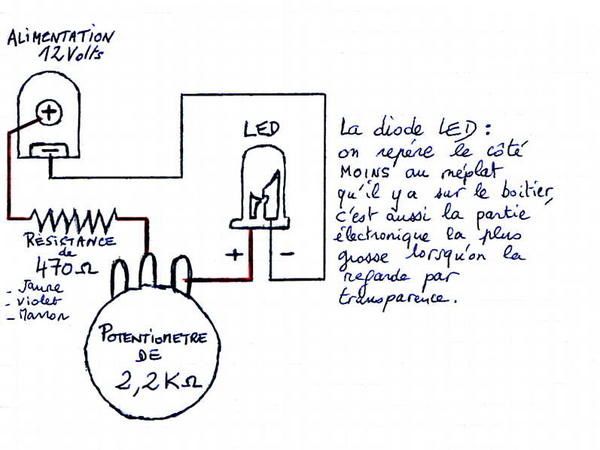 ALIMENTATION
12 Volts
+
−
LED
RÉSISTANCE
de
470Ω
- Jaune
- Violet
- Marron
+ −
POTENTIOMETRE
DE
2,2KΩ
La diode LED :
on repére le côté
MOINS au méplat
qu'il y a sur le boitier,
c'est aussi la partie
électronique la plus
grosse lorsqu'on la
regarde par
transparence.